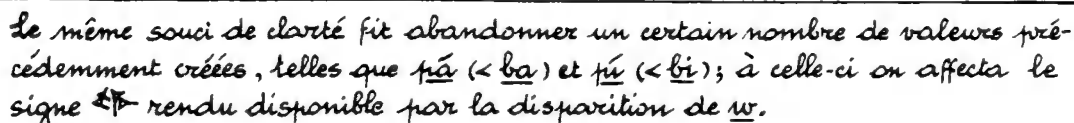 Le même souci de clarté fit abandonner un certain nombre de valeurs pré-
cédemment créées, telles que pá (< ba) et pí (< bi); à celle-ci on affecta le
signe rendu disponible par la disparition de w.